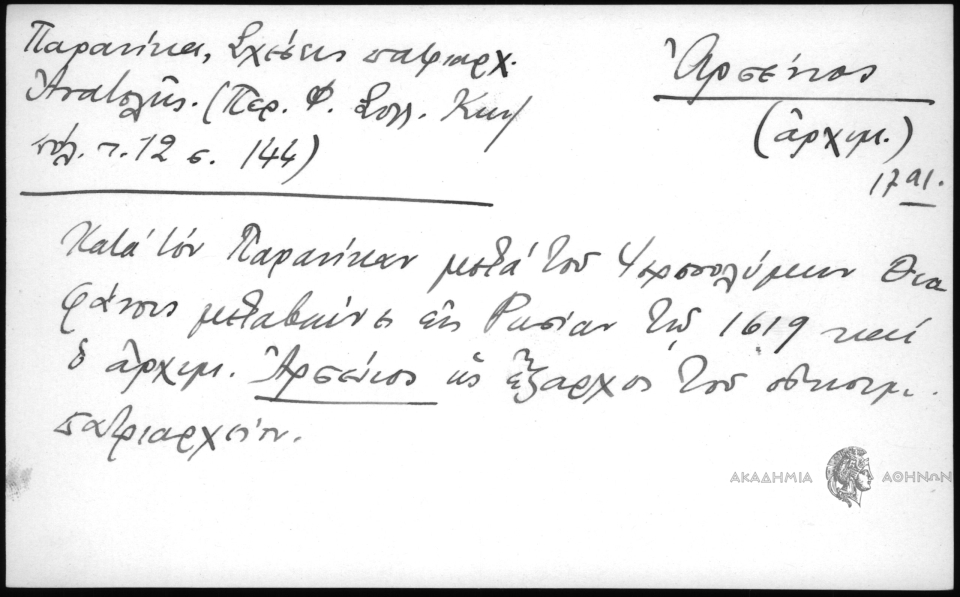 Παρανίκα, Σχέσεις πατριαρχ.
Ἀνατολῆς. (Περ. Φ. Συλλ. Κων/
πόλ. τ. 12 σ. 144)
Ἀρσένιος
(ἀρχιμ.)
17 αἰ.
Κατά τόν Παρανίκαν μετά τοῦ Ἱεροσολύμων Θεο
φάνους μετέβαινε εἰς Ρωσίαν τῷ 1619 καί
ὁ ἀρχιμ. Ἀρσένιος ὡς ἔξαρχος τοῦ οἰκουμ.
πατριαρχείου.
ΑΚΑΔΗΜΙΑ ΑΘΗΝΩΝ